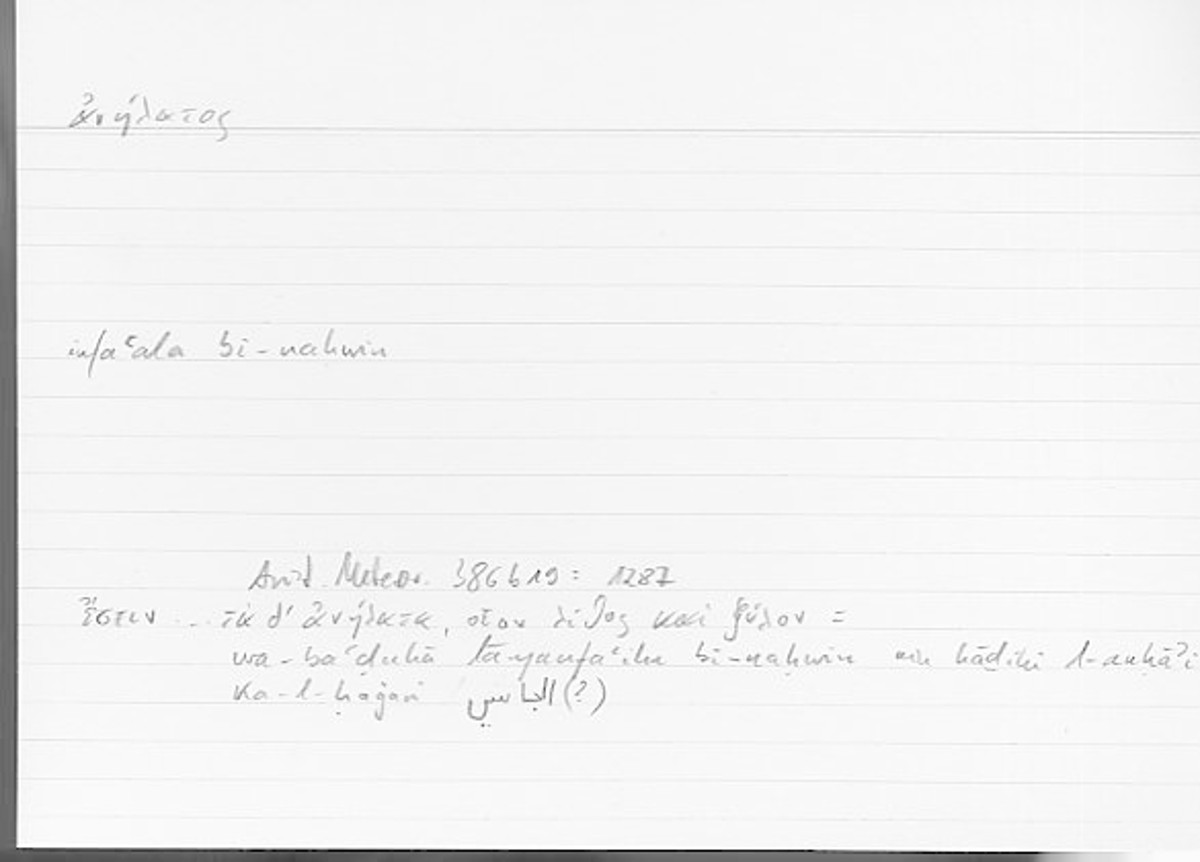 ἀνήλατος
infaʿala bi-naḥwin
Arist. Meteor. 386b19: 1287
ἔστιν ... τὰ δ' ἀνήλατα, οἷον λίθος καὶ ξύλον =
wa-baʿduhā lā yanfaʿilu bi-naḥwin min hāḏihi l-anḥāʾi
ka-l-ḥaǧari الجاسي (?)